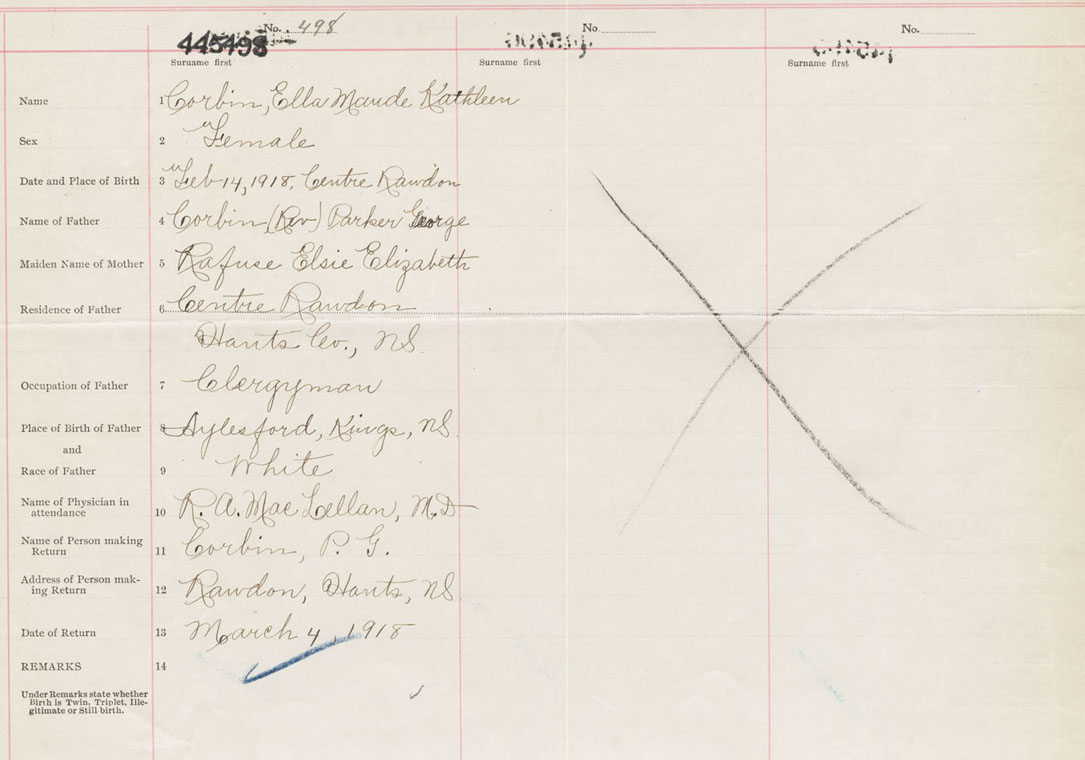 No. 498
445498
Surname first
No.
Surname first
No.
Surname first
Name 1 Corbin, Ella Maude Kathleen
Sex 2 Female
Date and Place of Birth 3 Feb 14, 1918, Centre Rawdon
Name of Father 4 Corbin (Rev) Parker George
Maiden Name of Mother 5 Rafuse Elsie Elizabeth
Residence of Father 6 Centre Rawdon
Hants Co., NS.
Occupation of Father 7 Clergyman
Place of Birth of Father 8 Aylesford, Kings, NS.
and
Race of Father 9 White
Name of Physician in
attendance 10 R. A. MacLellan, M.D
Name of Person making
Return 11 Corbin, P. G.
Address of Person mak-
ing Return 12 Rawdon, Hants, NS
Date of Return 13 March 4, 1918
REMARKS 14
Under Remarks state whether
Birth is Twin, Triplet, Ille-
gitimate or Still birth.